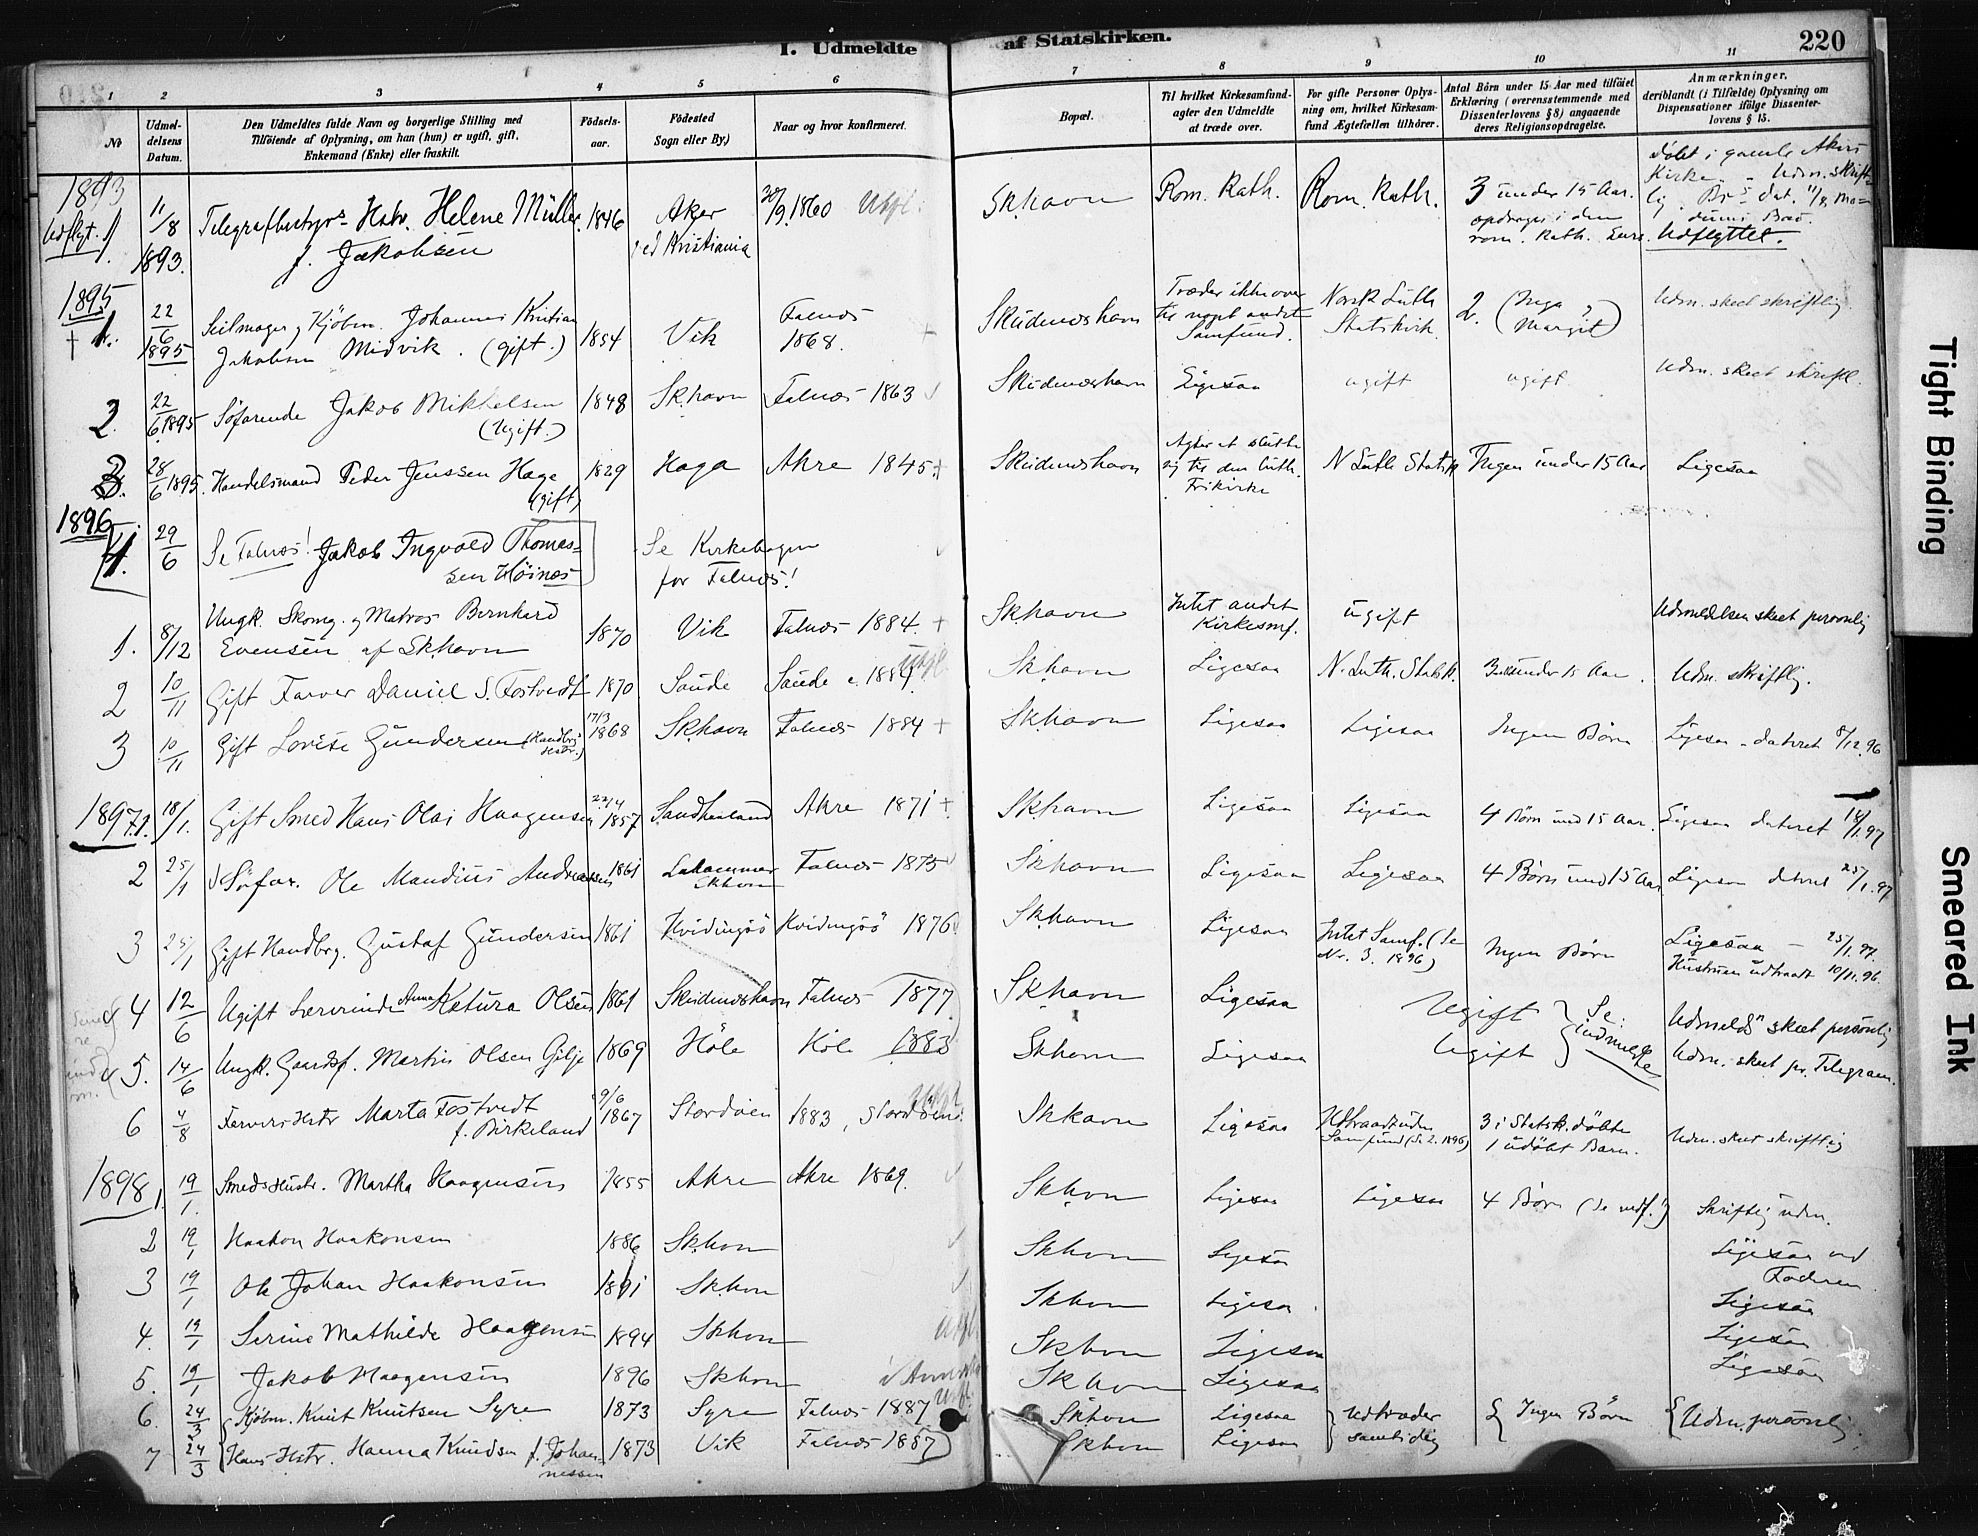 I. Udmeldte af Statskirken.
220
1 2 3 4 5 6 7 8 9 10 11
No
Udmel-
delsens
Datum.
Den Udmeldtes fulde Navn og borgerlige Stilling med
Tilföiende af Oplysning, om han (hun) er ugift, gift,
Enkemand (Enke) eller fraskilt.
Födsels-
aar.
Födested
Sogn eller By.)
Naar og hvor konfirmeret.
Bopæl.
Til hvilket Kirkesamfund-
agter den Udmeldte
at træde over.
For gifte Personer Oplys-
ning om, hvilket Kirkesam-
fund Ægtefællen tilhörer.
Antal Börn under 15 Aar med tilföiet
Erklæring (overensstemmende med
Dissenterlovens § 8) angaaende
deres Religionsopdragelse.
Anmærkninger,
deriblandt (i Tilfælde) Oplysning om
Dispensationer ifölge Dissenter-
lovens § 15.
1893
Udflyt. 1.
11/8
1893.
Telegrafbestyrs Hstr. Helene Müller
f. Jakobsen
1846
Aker
ved Kristiania
30/9 1860
Utfl.
Skhavn
Rom. Kath.
Rom. Kath.
3 under 15 Aar.
opdrages i den
rom. kath.
döbt i gamle Akers
Kirke. Udm. skrift-
lig
Udflyttet.
1895
† 1.
22/6
1895
Seilmager og Kjöbm. Johannes Kristian
Jakobsen Midvik. (gift.)
1854
Vik
Falnæs
1868. +
Skudenæshavn
Træder ikke over
til noget andet
Samfund.
Norsk Luth
Statskirk.
2. (Inga og
Margit)
Udm. skeet skriftlig.
2.
22/6 1895
Söfarende Jakob Mikkelsen
(Ugift.)
1848
Skhavn
Falnæs 1863
Skudenæshavn
Ligesaa
ugift
ugift
Udm. skeet skriftl.
3.
28/6 1895.
Handelsmand Peder Jenssen Hage
(gift)
1829
Haga
Akre 1845. +
Skudenæshavn
Agter at slutte
sig til den luth.
Frikirke
N Luth Statsk
Ingen under 15 Aar
Ligesaa
1896
1.
29/6
Se Falnæs! Jakob Ingvald Thomas-
sen Höines
Se Kirkebogen
for Falnæs!
1.
8/12
Ungk. Skomg. og Matros Bernhard
Evensen af Skhavn
1870
Vik
Falnæs 1884. +
Skhavn
Intet andet
Kirkesmf.
ugift
Udmeldelsen skeet personlig
2
10/11
Gift Farver Daniel S. Fostvedt
1870
Saude
Saude c. 1884.
Utfl.
Skhavn
Ligesaa
N. Luth. Statsk.
3 under 15 Aar.
Udm. skriftlig.
3
10/11
Gift Lovise Gundersen (Handbgs Hstr.)
17/3
1868
Skhavn
Falnæs 1884 +
Skhavn
Ligesaa
Ligesaa
Ingen Börn
Ligesaa - dateret 8/12. 96
1897. 1.
18/1.
Gift Smed Hans Olai Haagensen
22/4
1857
Sandhaaland
Akre 1871 +
Skhavn
Ligesaa
Ligesaa
4 Börn und 15 Aar.
Ligesaa dateret 18/1. 97
2
25/1
Söfar. Ole Mandius Andreassen
1861
Lahammer
Skhavn
Falnæs 1875
Skhavn
Ligesaa
Ligesaa
4 Börn und 15 Aar
Ligesaa dateret 25/1. 97
3
25/1
Gift Handbg. Gustaf Gundersen
1861
Hvidingsö
Hvidingsö 1876
Skhavn
Ligesaa
Intet Samf. (Se
Nr. 3. 1896)
Ingen Börn
Ligesaa - 25/1. 97.
Hustruen udtraadt 10/11. 96.
4
12/6
Ugift Lærerinde Anna Katura Olsen
1861
Skudenæshavn
Falnæs 1877
Skhavn
Ligesaa
Ugift
Se:
indmeldte
Udmelds skeet personlig
5.
14/6
Ungk. Gaardsf. Martin Olsen Gilje
1869
Höle
Höle 1883
Skhavn
Ligesaa
Ugift
Udm. skeet pr. Telegram.
6
4/8
Farvers Hstr Marta Fostvedt
f. Birkeland
9/6
1867
Stordöen
1883, Stordöen.
Utfl.
Skhavn
Ligesaa
Udtraadt uden
Samfund (Se 2. 1896)
3 i Statsk. döbte
1 udöbt Barn.
Udm. skeet skriftlig
1898 1.
19/1.
Smeds Hustr. Martha Haagensen
1855
Akre
Akre 1869.
Skhvn
Ligesaa
Ligesaa
4 Börn (Se nedf.!)
Skriftlig udm.
2
19/1
Haakon Haakonsen
1886
Skhvn
Skhvn
Ligesaa
Ligesaa ved
Faderen
3
19/1
Ole Johan Haakonsen
1891
Skhvn
Skhvn
Ligesaa
Ligesaa
4.
19/1
Serine Mathilde Haagensen
1894
Skhvn
Utfl.
Skhvn
Ligesaa
Ligesaa
5.
19/1
Jakob Haagensen
1896
Skhvn
Skhvn
Ligesaa
Ligesaa
6.
24/3
Kjöbm. Knut Knutsen Syre
1873
Syre
Falnæs 1887
Skhvn
Ligesaa
Udtræder
samtidig
Ingen Börn
Udm. personlig.
7
24/3
Hans Hstr. Hanna Knudsen f. Johan-
nessen
1873
Vik
Falnæs 1887
Skhvn
Ligesaa
Tight Binding
Smeared Ink